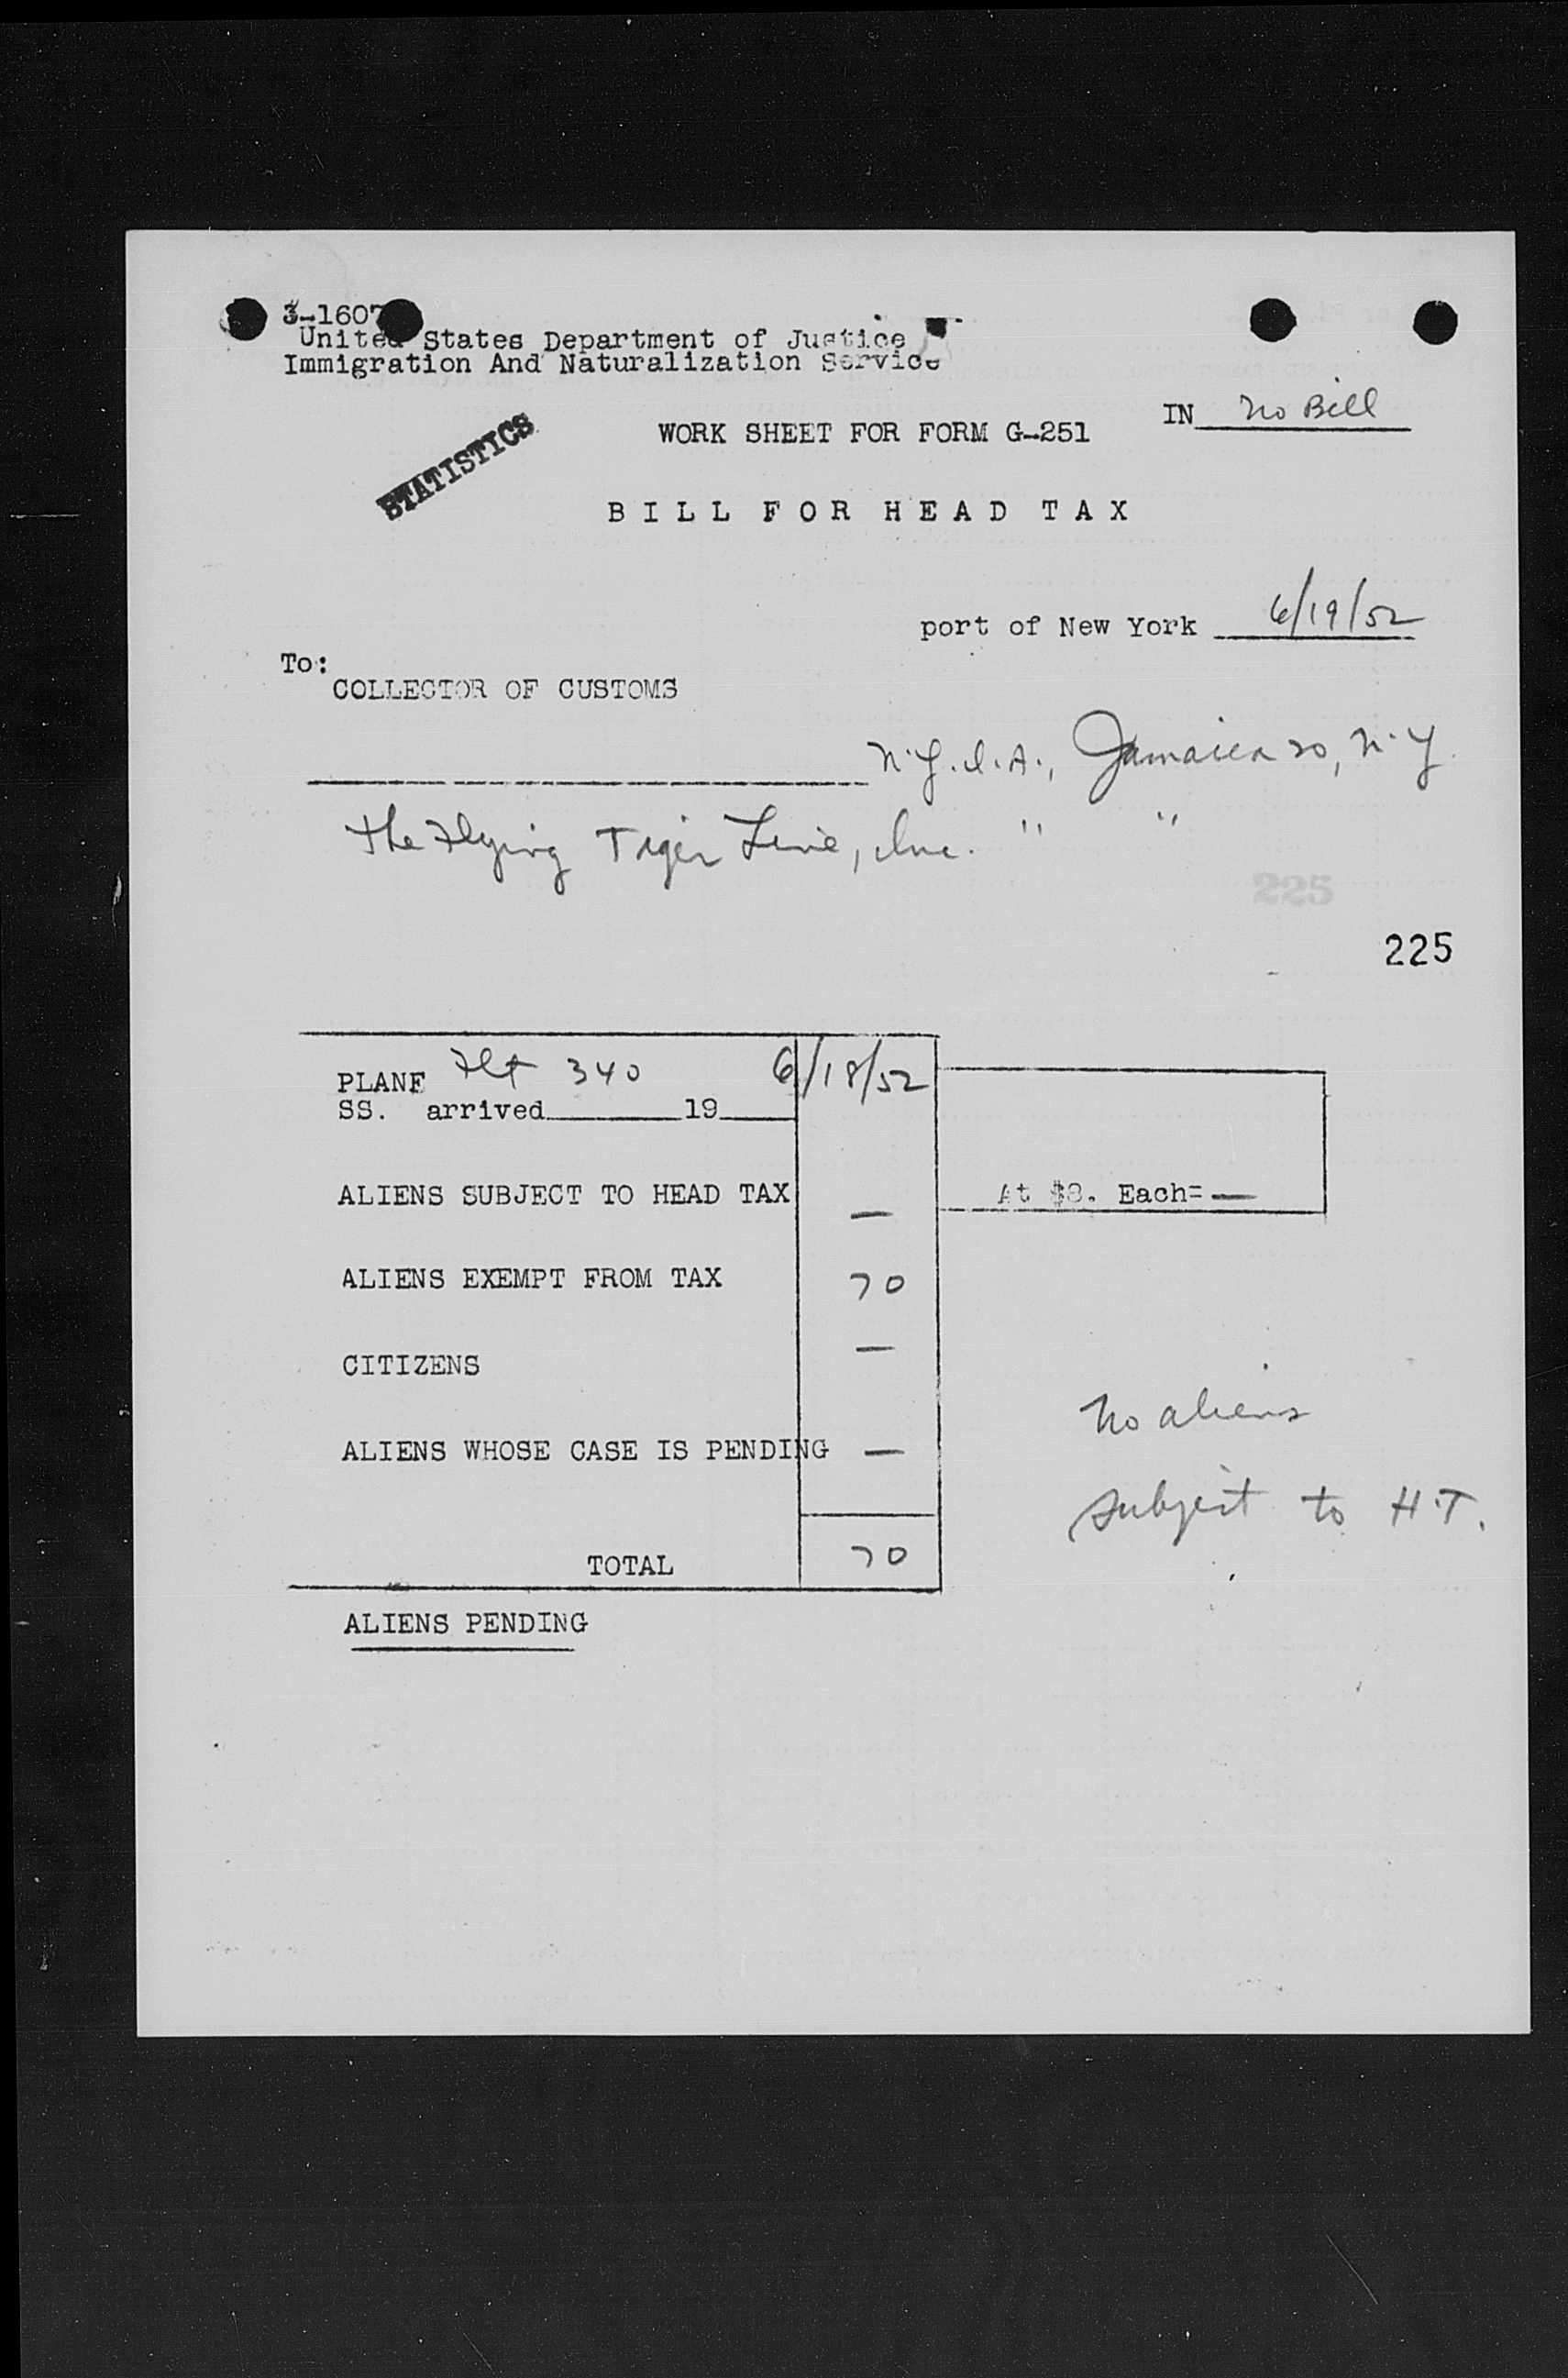 3-1607
United States Department of Justice
Immigration And Naturalization Service
IN No Bill
STATISTICS
WORK SHEET FOR FORM G-251
BILL FOR HEAD TAX
port of New York 6/19/52
To:
COLLECTOR OF CUSTOMS
N.Y.I.A., Jamaica 20, N.Y.
The Flying Tiger Line, Inc. " "
225
225
PLANE Flt 340 6/18/52
SS. arrived 19
ALIENS SUBJECT TO HEAD TAX — At $8. Each= —
ALIENS EXEMPT FROM TAX 70
CITIZENS —
No aliens
ALIENS WHOSE CASE IS PENDING —
subject to H.T.
TOTAL 70
ALIENS PENDING